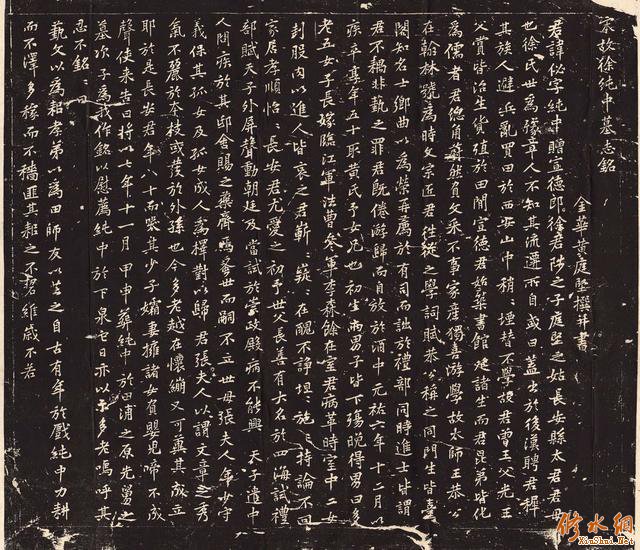 宋故徐純中墓誌銘
金華黃庭堅撰并書
君諱佖字純中贈宣德郎徐君陟之子庭堅之姑長安縣太君君母
也徐氏世為豫章人不知其流遷所自或曰蓋出於後漢聘君稺
其族人避兵亂買田於西安山中稍々堙替不學故君曾王父光王
父賞皆治生貲殖於田間宣德君始築書館延諸生而君昆弟皆化
為儒者君總角薾然負父米不事家產獨喜游學故太師王恭公
在翰林號為時文宗匠君往從之學詞賦恭公稱之同門生皆臺
閣知名士鄉曲以為榮再薦於有司而詘於禮部同時進士皆謂
君不耦非執之罪君既倦游歸而自放於酒中元祐六年十月以
疾卒其年五十耶黃氏予女兄也初生兩男子皆下殤晚得男曰多
老五女子長嫁臨江軍法曹參軍李森餘在室君病革時室中二女
刲股內以進人皆哀之君靳嶷々在醜不諍坦施々持論不回
家居孝順怡々長安君尤愛之初予世父長善有大名於四海試禮
部賦天子外屏聲動朝廷及當試於崇政殿病不能興天子遣中
人問疾於其邸舍賜之藥齊嗚世而嗣不立世母張夫人年少守
義保其孤女及孤女成人為擇對以歸君張夫人以謂文章之秀
氣不麗於本枝或發於外孫也今多老越在懷繃又可冀其成立
耶於是長安君年八十而哭其少子孀妻擁諸女負嬰兒啼不成
聲使來告曰將以七年十一月甲申葬純中於田浦之原先舅之
墓次子為我作銘慰薦純中於下泉它日亦以示多老嗚呼其
忍不銘
藝文以為耜孝弟以為田師友以芸之自古有年於戲純中力耕
而不澤多稼而不穡匪其耜之不䂮維歲不若
修水网
XiuShui.Net